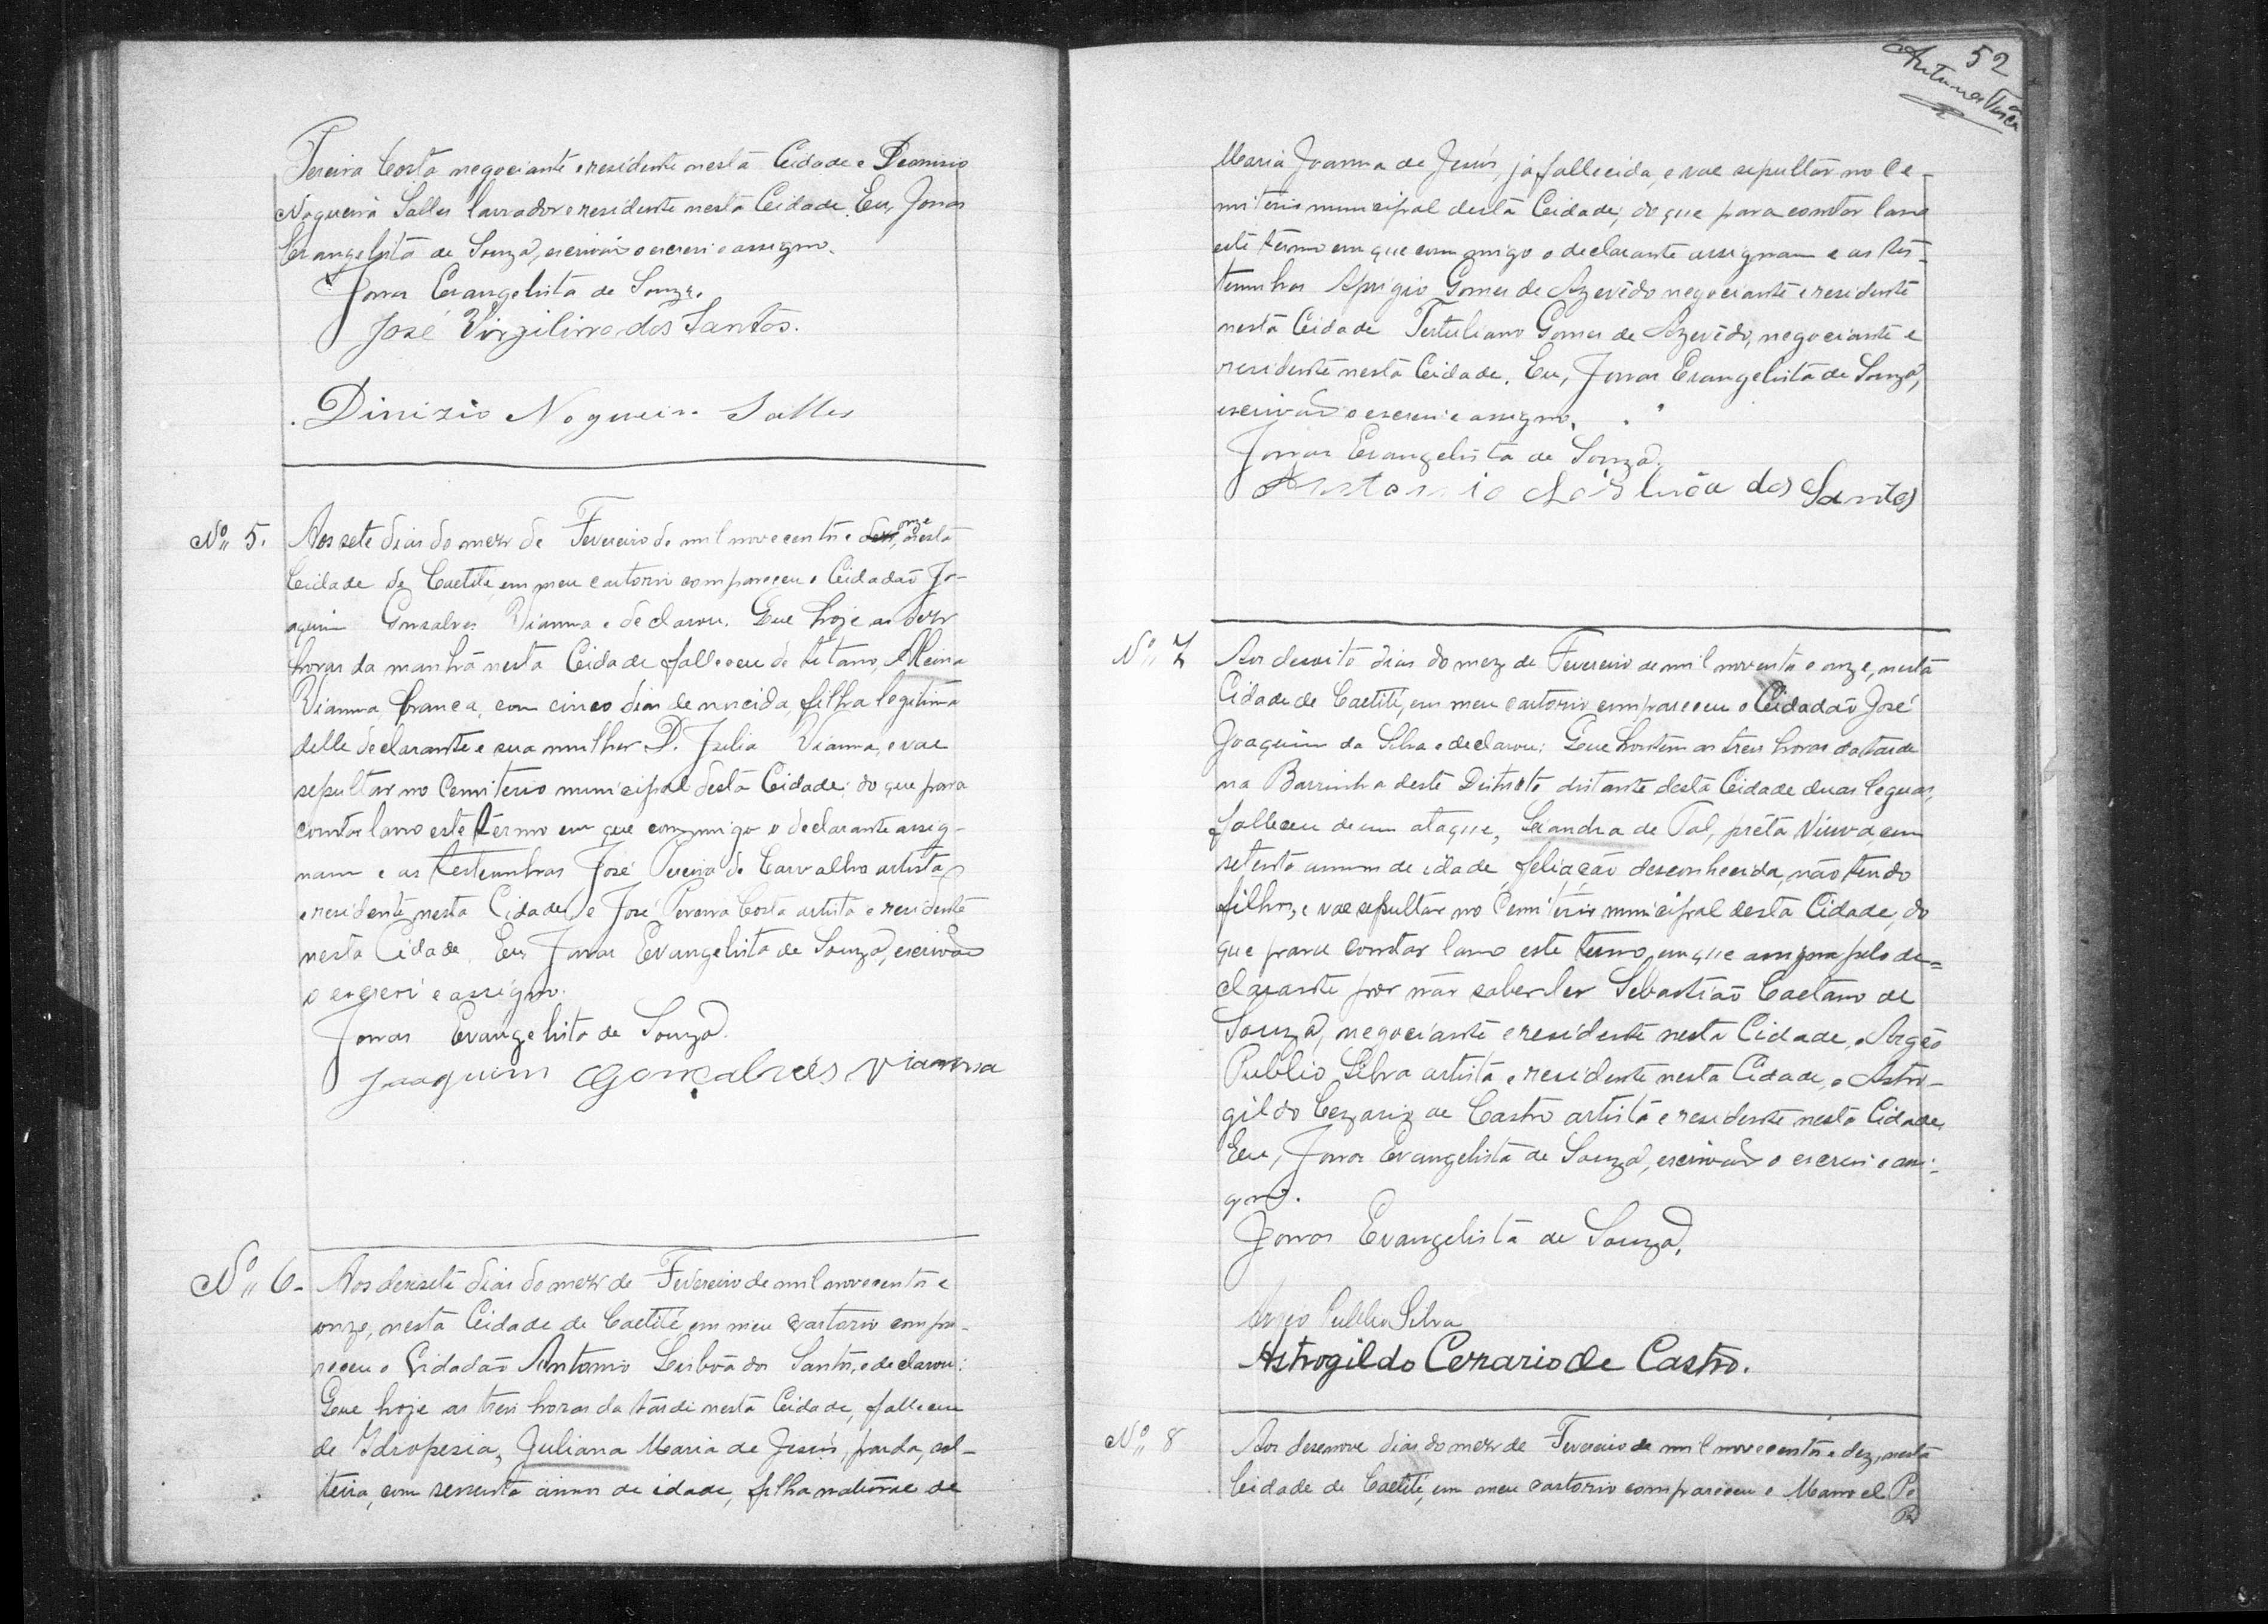 Pereira Costa negociante e residente nesta Cidade e Deonisio
Nogueira Salles lavrador e residente nesta Cidade. Eu, Jonas
Evangelista de Souza, escrivão o escrevi e assigno.
Jonas Evangelista de Souza.
José Virgilino dos Santos.
Dinizio Nogueira Salles
Nº 5. Aos sete dias do mez de Fevereiro de mil novecentos e onze, nesta
Cidade de Caetité em meu cartorio compareceu o Cidadão Jo-
aquim Gonsalves Vianna e declarou. Que hoje as dez
horas da manhã nesta Cidade falleceu de tetano, Alcina
Vianna, branca, com cinco dias de nascida, filha legitima
delle declarante e sua mulher D. Julia Vianna, e vae
sepultar no Cemiterio municipal desta Cidade: do que para
constar lavro este termo em que commigo o declarante assig-
nam e as testemunhas José Pereira de Carvalho artista
e residente nesta Cidade, e José Pereira Costa artista e residente
nesta Cidade. Eu, Jonas Evangelista de Souza, escrivão
o escrevi e assigno.
Jonas Evangelista de Souza.
Joaquim Gonçalves Vianna
Nº 6. Aos desesete dias do mez de Fevereiro de mil novecentos e
onze, nesta Cidade de Caetité em meu cartorio compa-
receu o Cidadão Antonio Lisbôa dos Santos, e declarou:
Que hoje as tres horas da tarde nesta Cidade, falleceu
de Idropesia, Juliana Maria de Jesus, parda, sol-
teira, com sessenta annos de idade, filha natural de
52
Maria Joanna de Jesus, já fallecida, e vae sepultar no Ce-
miterio municipal desta Cidade; do que para constar lavro
este termo em que commigo o declarante assignam e as tes-
temunhas Aprigio Gomes de Azevêdo negociante e residente
nesta Cidade Tertuliano Gomes de Azevêdo, negociante e
residente nesta Cidade. Eu, Jonas Evangelista de Souza,
escrivão o escrevi e assigno.
Jonas Evangelista de Souza.
Antonio Lisbuôa dos Santos
Nº 7 Aos desoito dias do mez de Fevereiro de mil novecentos e onze, nesta
Cidade de Caetité, em meu cartorio compareceu o Cidadão José
Joaquim da Silva e declarou: Que hontem as tres horas da tarde
na Barrinha deste Districto distante desta Cidade duas leguas,
falleceu de um ataque, Leandra de Tal, prêta Viuva, com
setenta annos de idade, feliação desconhecida, não tendo
filhos, e vae sepultar no Cemiterio municipal desta Cidade, do
que para constar lavro este termo, em que assigna pelo de=
clarante por não saber ler Sebastião Caetano de
Souza, negociante e residente nesta Cidade, e Argêo
Publio Silva artista e residente nesta Cidade, e Astro-
gildo Cezario de Castro artista e residente nesta Cidade,
Eu, Jonas Evangelista de Souza, escrivão o escrevi e assi-
gno.
Jonas Evangelista de Souza.
Argêo Publio Silva
Astrogildo Cezario de Castro.
Nº 8 Aos desenove dias do mez de Fevereiro de mil novecentos e dez, nesta
Cidade de Caetité, em meu cartorio compareceu o Manoel Pe